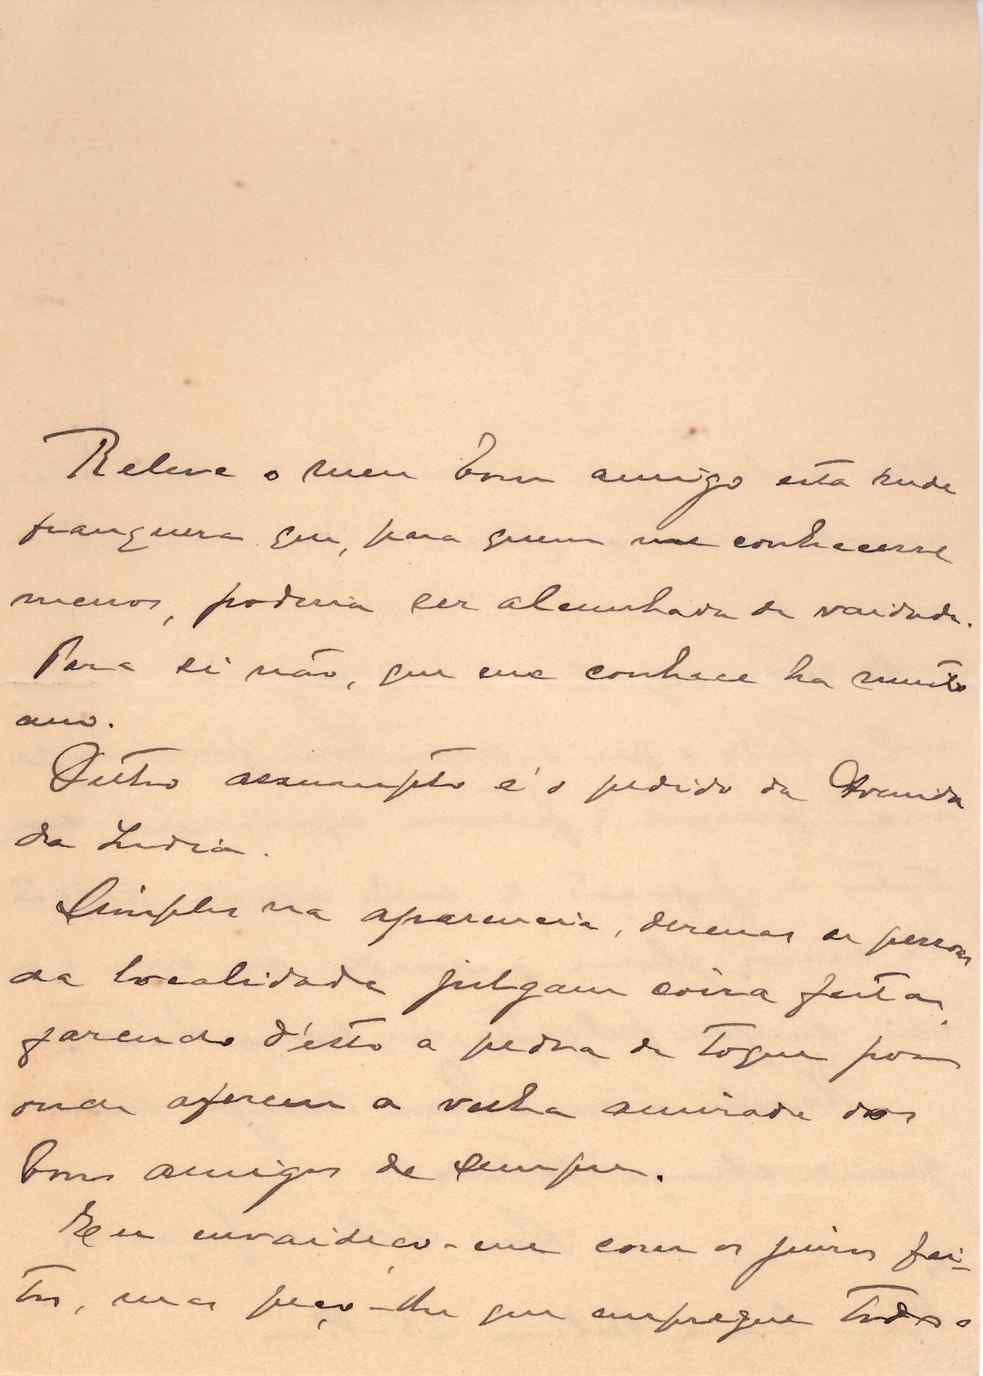 Releve o meu bom amigo esta rude
franqueza que, para quem me conhecesse
menos, poderia ser alcunhada de vaidade.
Para si não, que me conhece ha muito
ano.
Outro assumpto é o pedido da Avenida
da India.
Simples na aparencia, dezenas de pessoas
da localidade julgam coisa feita,
fazendo d'isto a pedra de toque por
onde aferem a velha amizade dos
bons amigos de sempre.
Eu envaideço-me com os juizos fei-
tos, mas peço-lhe que empregue todo o